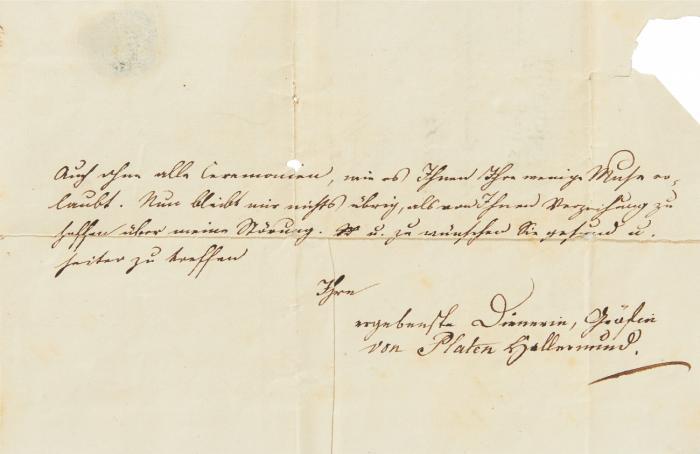 Auch ohne alle Ceremonien, wie es Ihnen Ihre wenige Muse er-
laubt. Nun bleibt mir nichts übrig, als von Ihnen Verzeihung zu
hoffen über meine Störung. u. zu wünschen Sie gesund u.
heiter zu treffen
Ihre
ergebenste Dienerin, Gräfin
von Platen Hallermund.